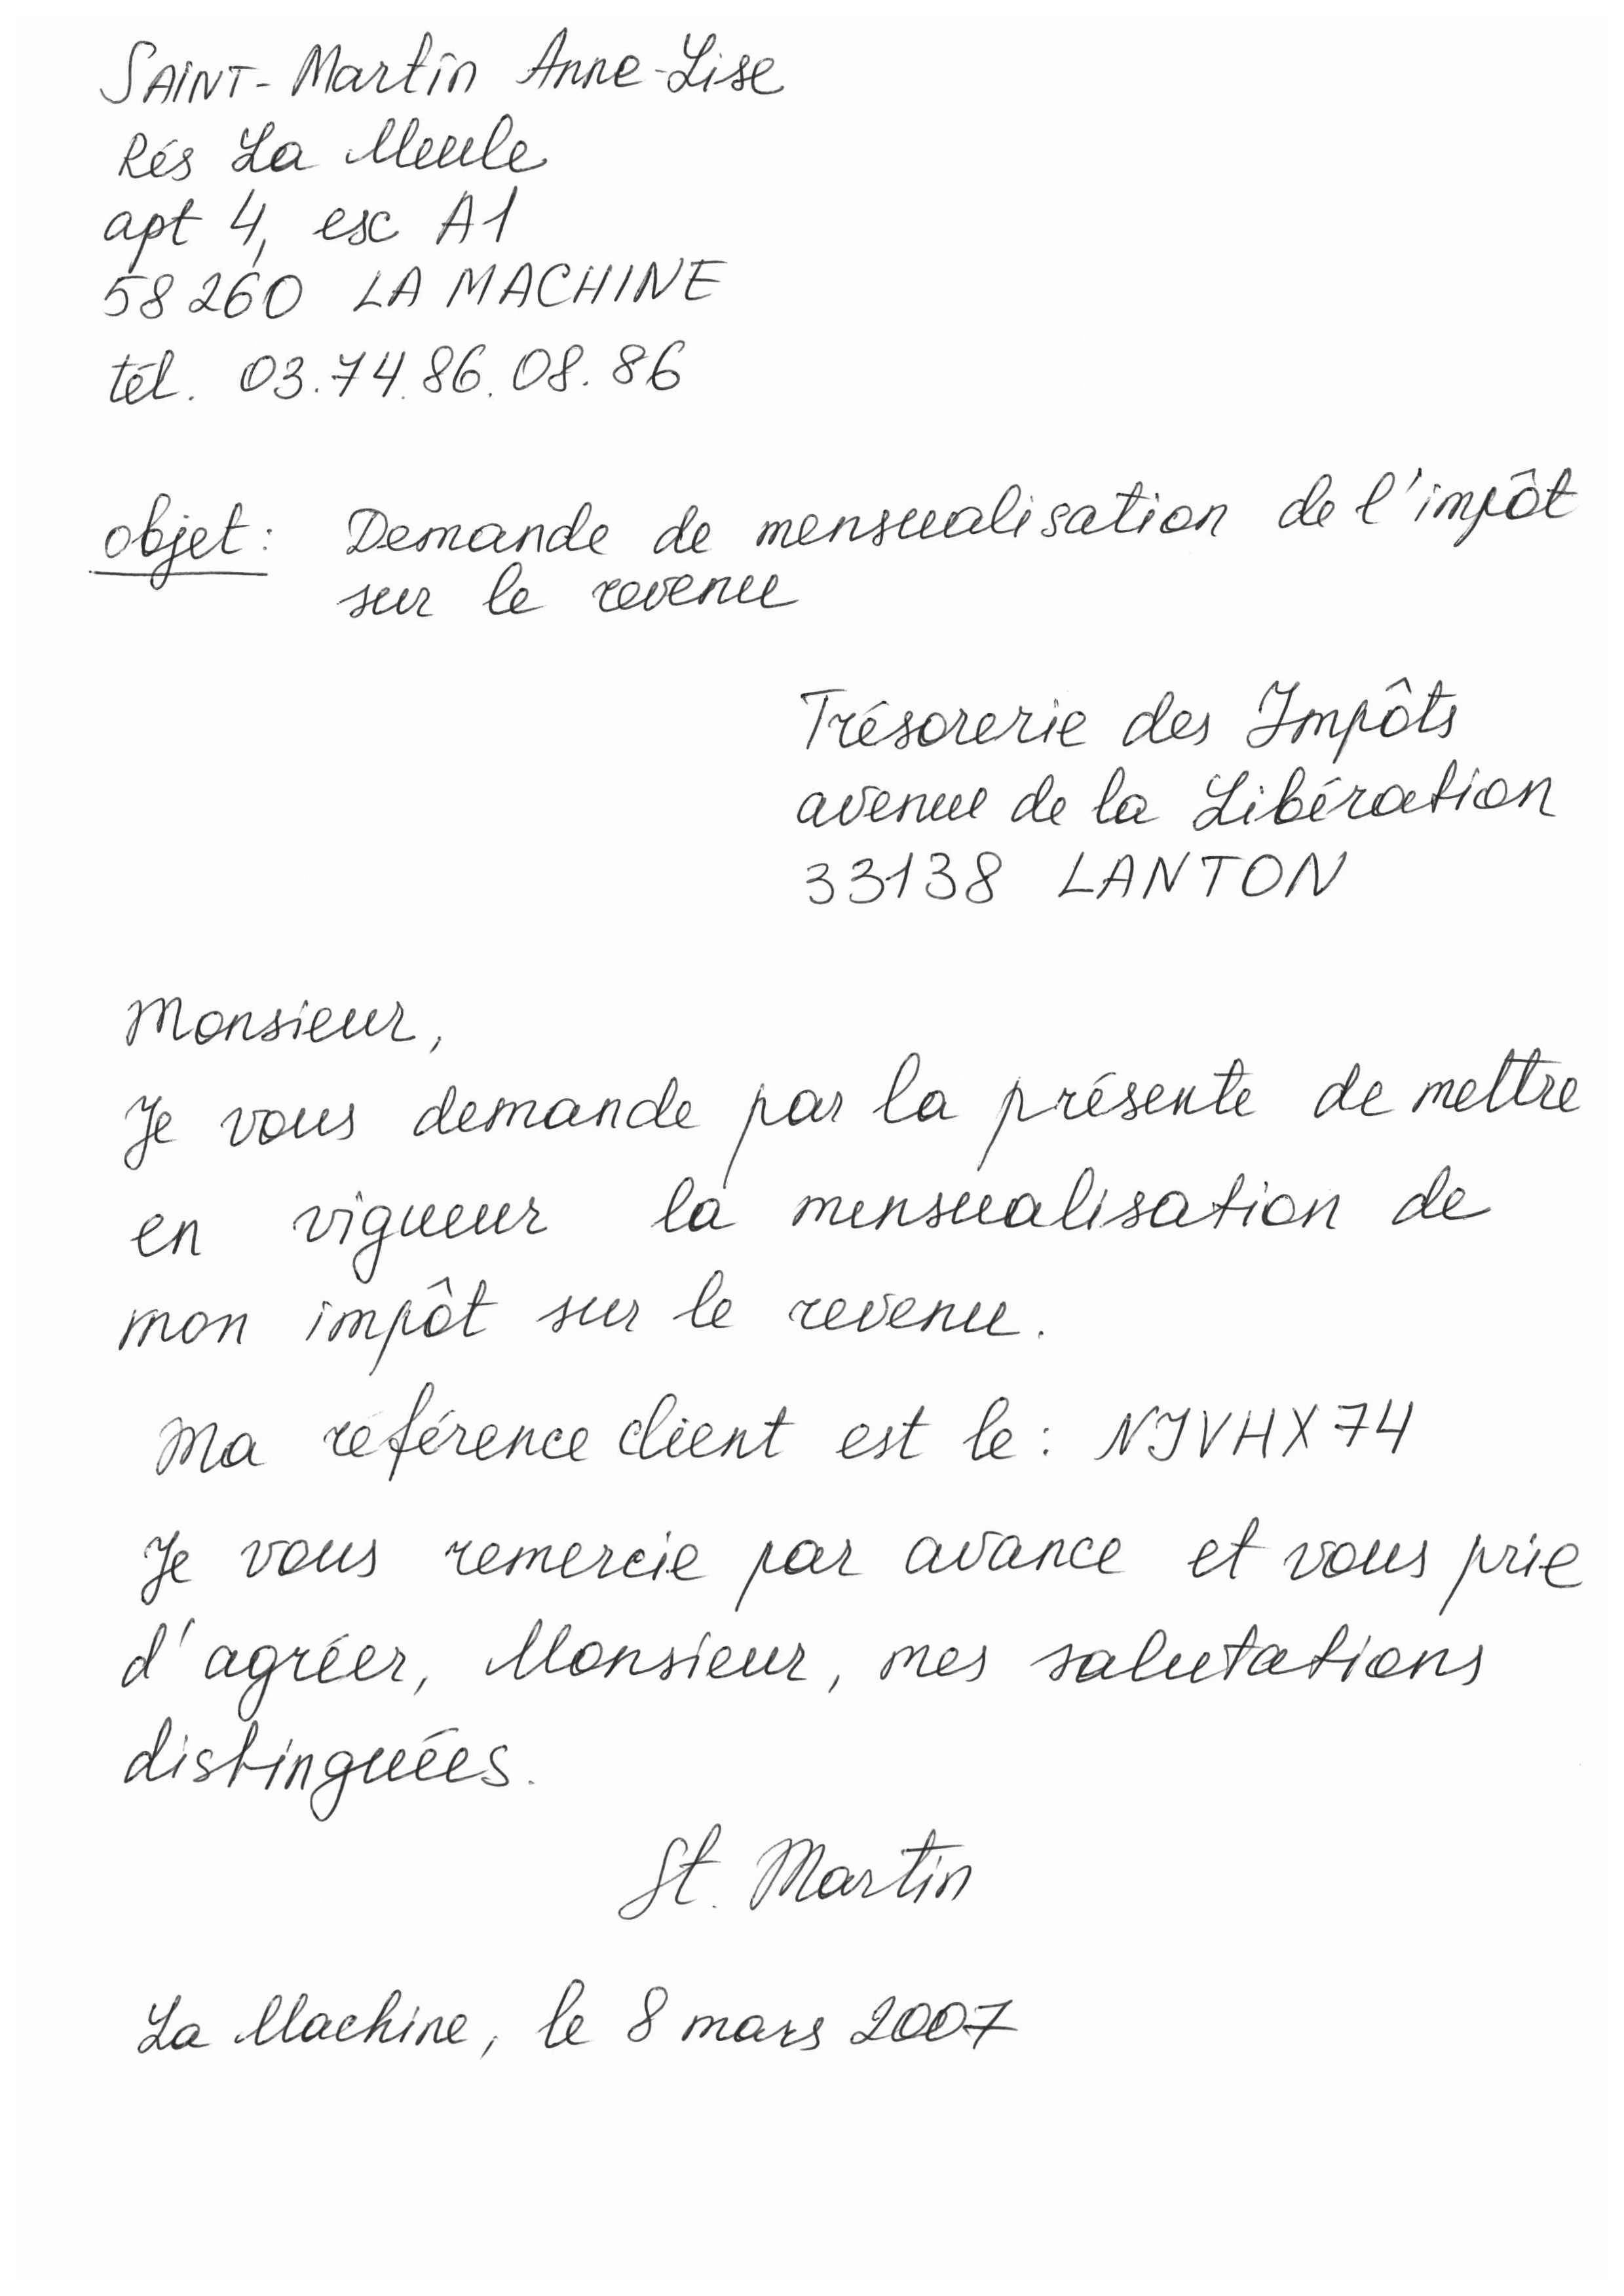 SAINT-Martin Anne-Lise
Rés La Meule
apt 4, esc A1
58260 LA MACHINE
tél. 03.74.86.08.86
objet: Demande de mensualisation de l'impôt
sur le revenu
Trésorerie des Impôts
avenue de la Libération
33138 LANTON
Monsieur,
Je vous demande par la présente de mettre
en vigueur la mensualisation de
mon impôt sur le revenu.
Ma référence client est le: NJVHX74
Je vous remercie par avance et vous prie
d'agréer, Monsieur, mes salutations
distinguées.
St. Martin
La Machine, le 8 mars 2007